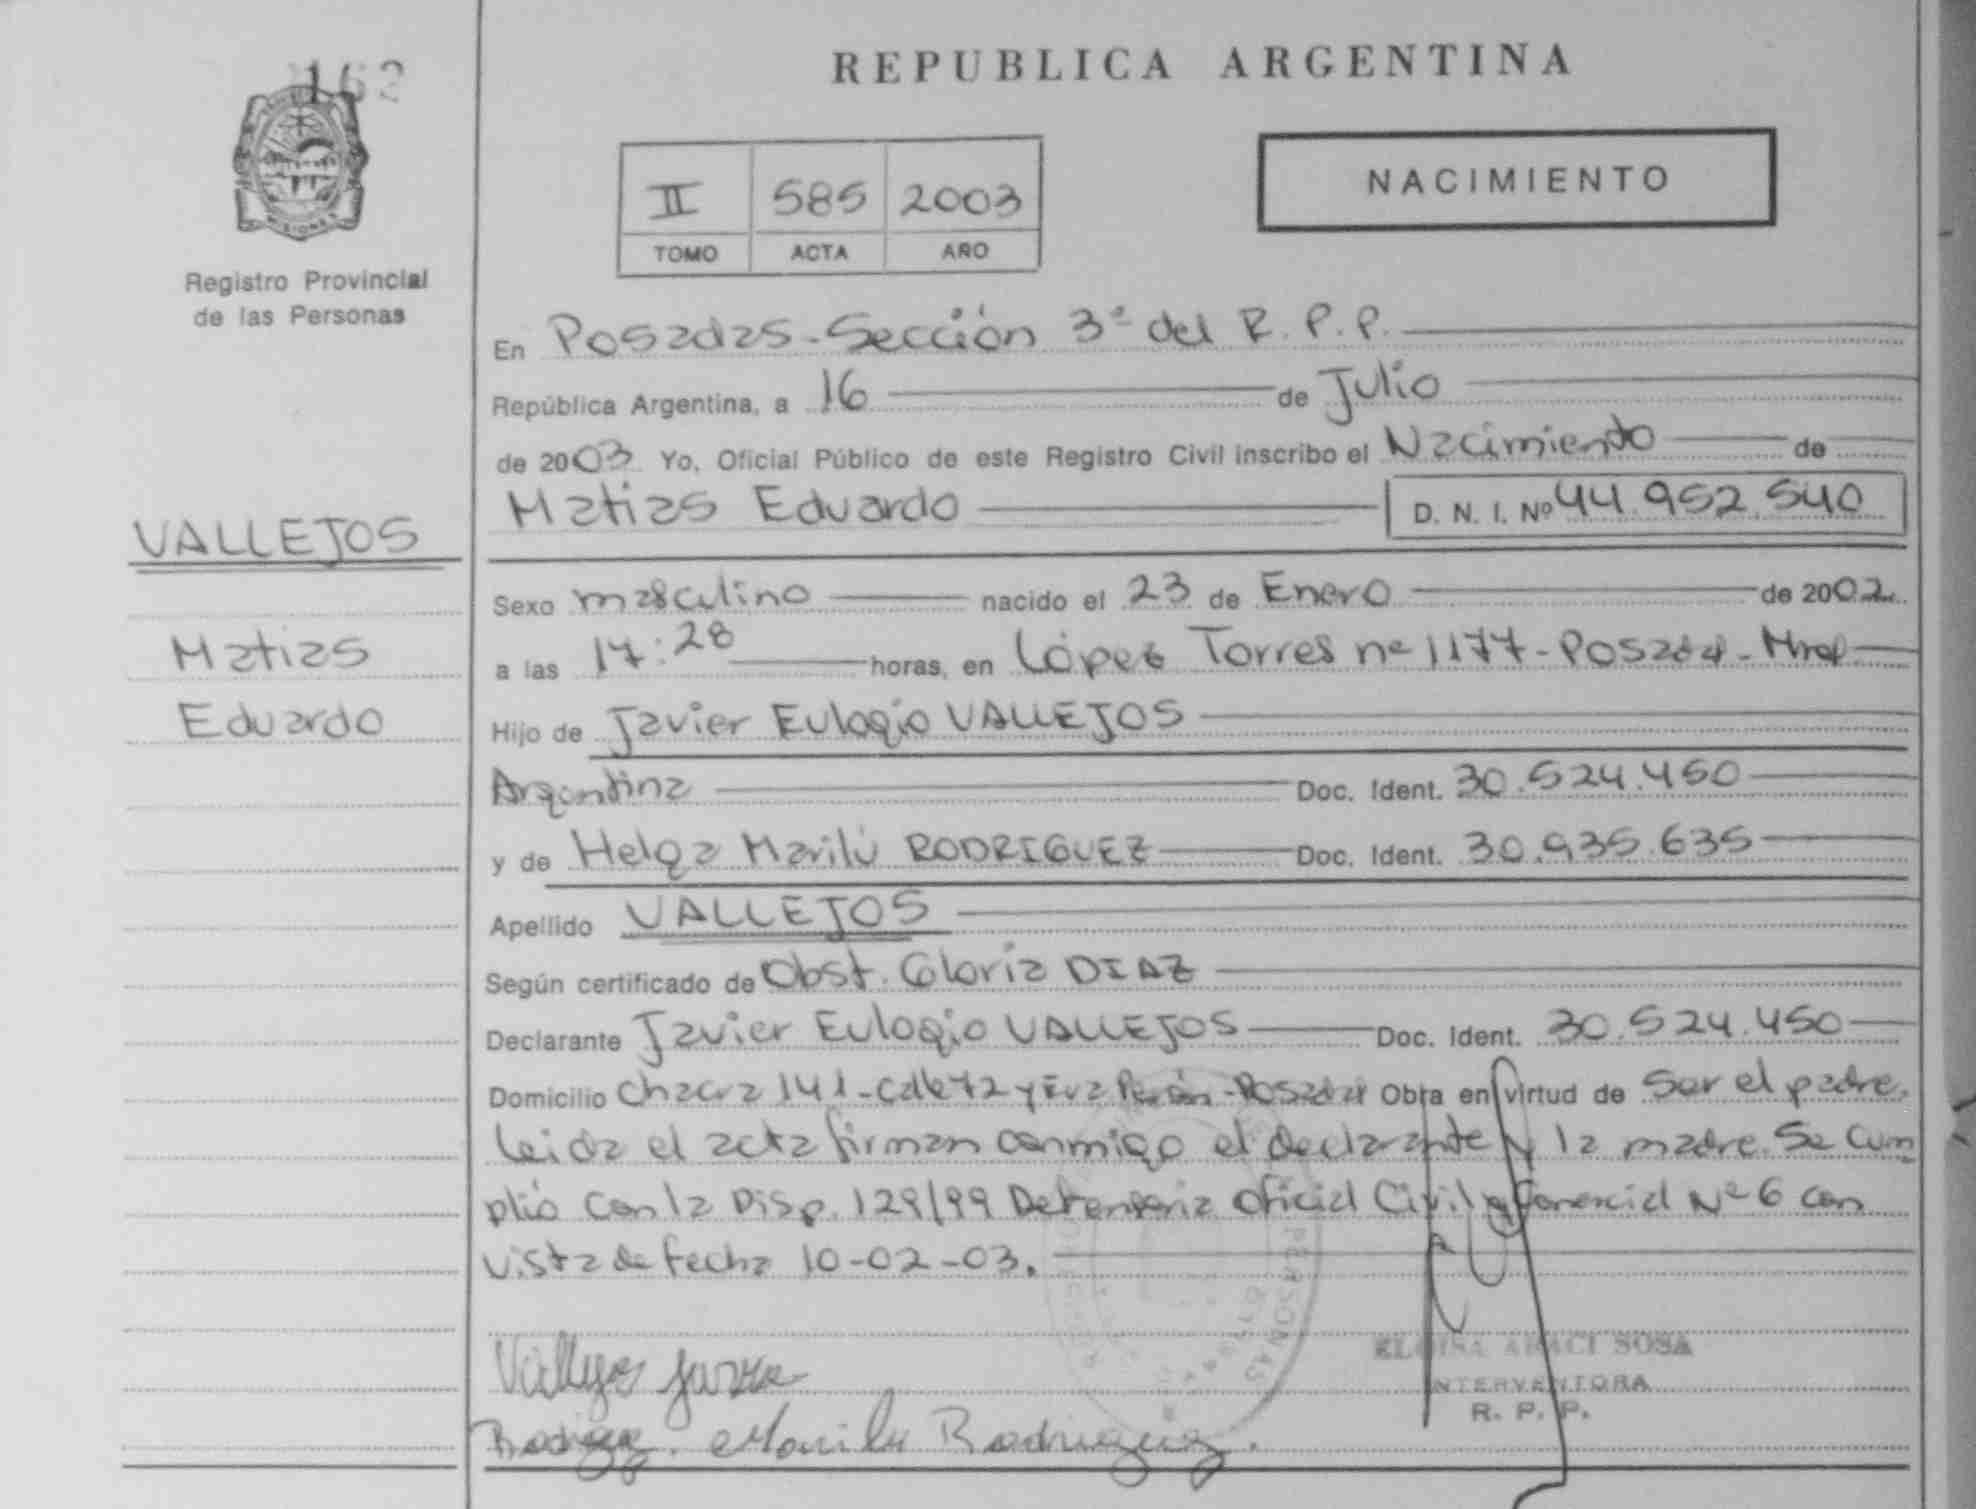 162
REPUBLICA ARGENTINA
MISIONES
Registro Provincial
de las Personas
II 585 2003
TOMO ACTA AÑO
NACIMIENTO
En Posadas - Sección 3ª del R. P. P.
República Argentina, a 16 de Julio
de 2003 Yo, Oficial Público de este Registro Civil inscribo el Nacimiento de
Matias Eduardo D. N. I. Nº 44.952.540
VALLEJOS
Matias
Eduardo
Sexo masculino nacido el 23 de Enero de 2002
a las 17:28 horas, en López Torres nº 1177 - Posadas - Mnes
Hijo de Javier Eulogio VALLEJOS
Argentina Doc. Ident. 30.524.450
y de Helga Marilú RODRIGUEZ Doc. Ident. 30.935.635
Apellido VALLEJOS
Según certificado de Obst. Gloria DIAZ
Declarante Javier Eulogio VALLEJOS Doc. Ident. 30.524.450
Domicilio Chacra 141 - Calle 72 y Eva Perón - Posadas Obra en virtud de Ser el padre.
Leida el acta firman conmigo el declarante y la madre. Se cum
plió con la Disp. 129/99 Defensoria Oficial Civil y Comercial Nº 6 con
vista de fecha 10-02-03.
PERSONAS
ELOISA ARACI SOSA
INTERVENTORA
R. P. P.
Vallejos Javier
Marilu Rodriguez.